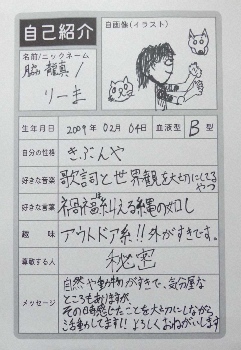 自己紹介
自画像(イラスト)
名前/ニックネーム
脇 龍真/
りーま
生年月日 2009年 02月 04日 血液型 B型
自分の性格 きぶんや
好きな音楽 歌詞と世界観を大切にしてる
やつ
好きな言葉 禍福は糾える縄の如し
趣味 アウトドア系!!外がすきです。
尊敬する人 秘密
メッセージ 自然や動物がすきで、気分屋な
ところもありますが、
その時感じたことを大切にしながら
活動してます!! よろしくおねがいします